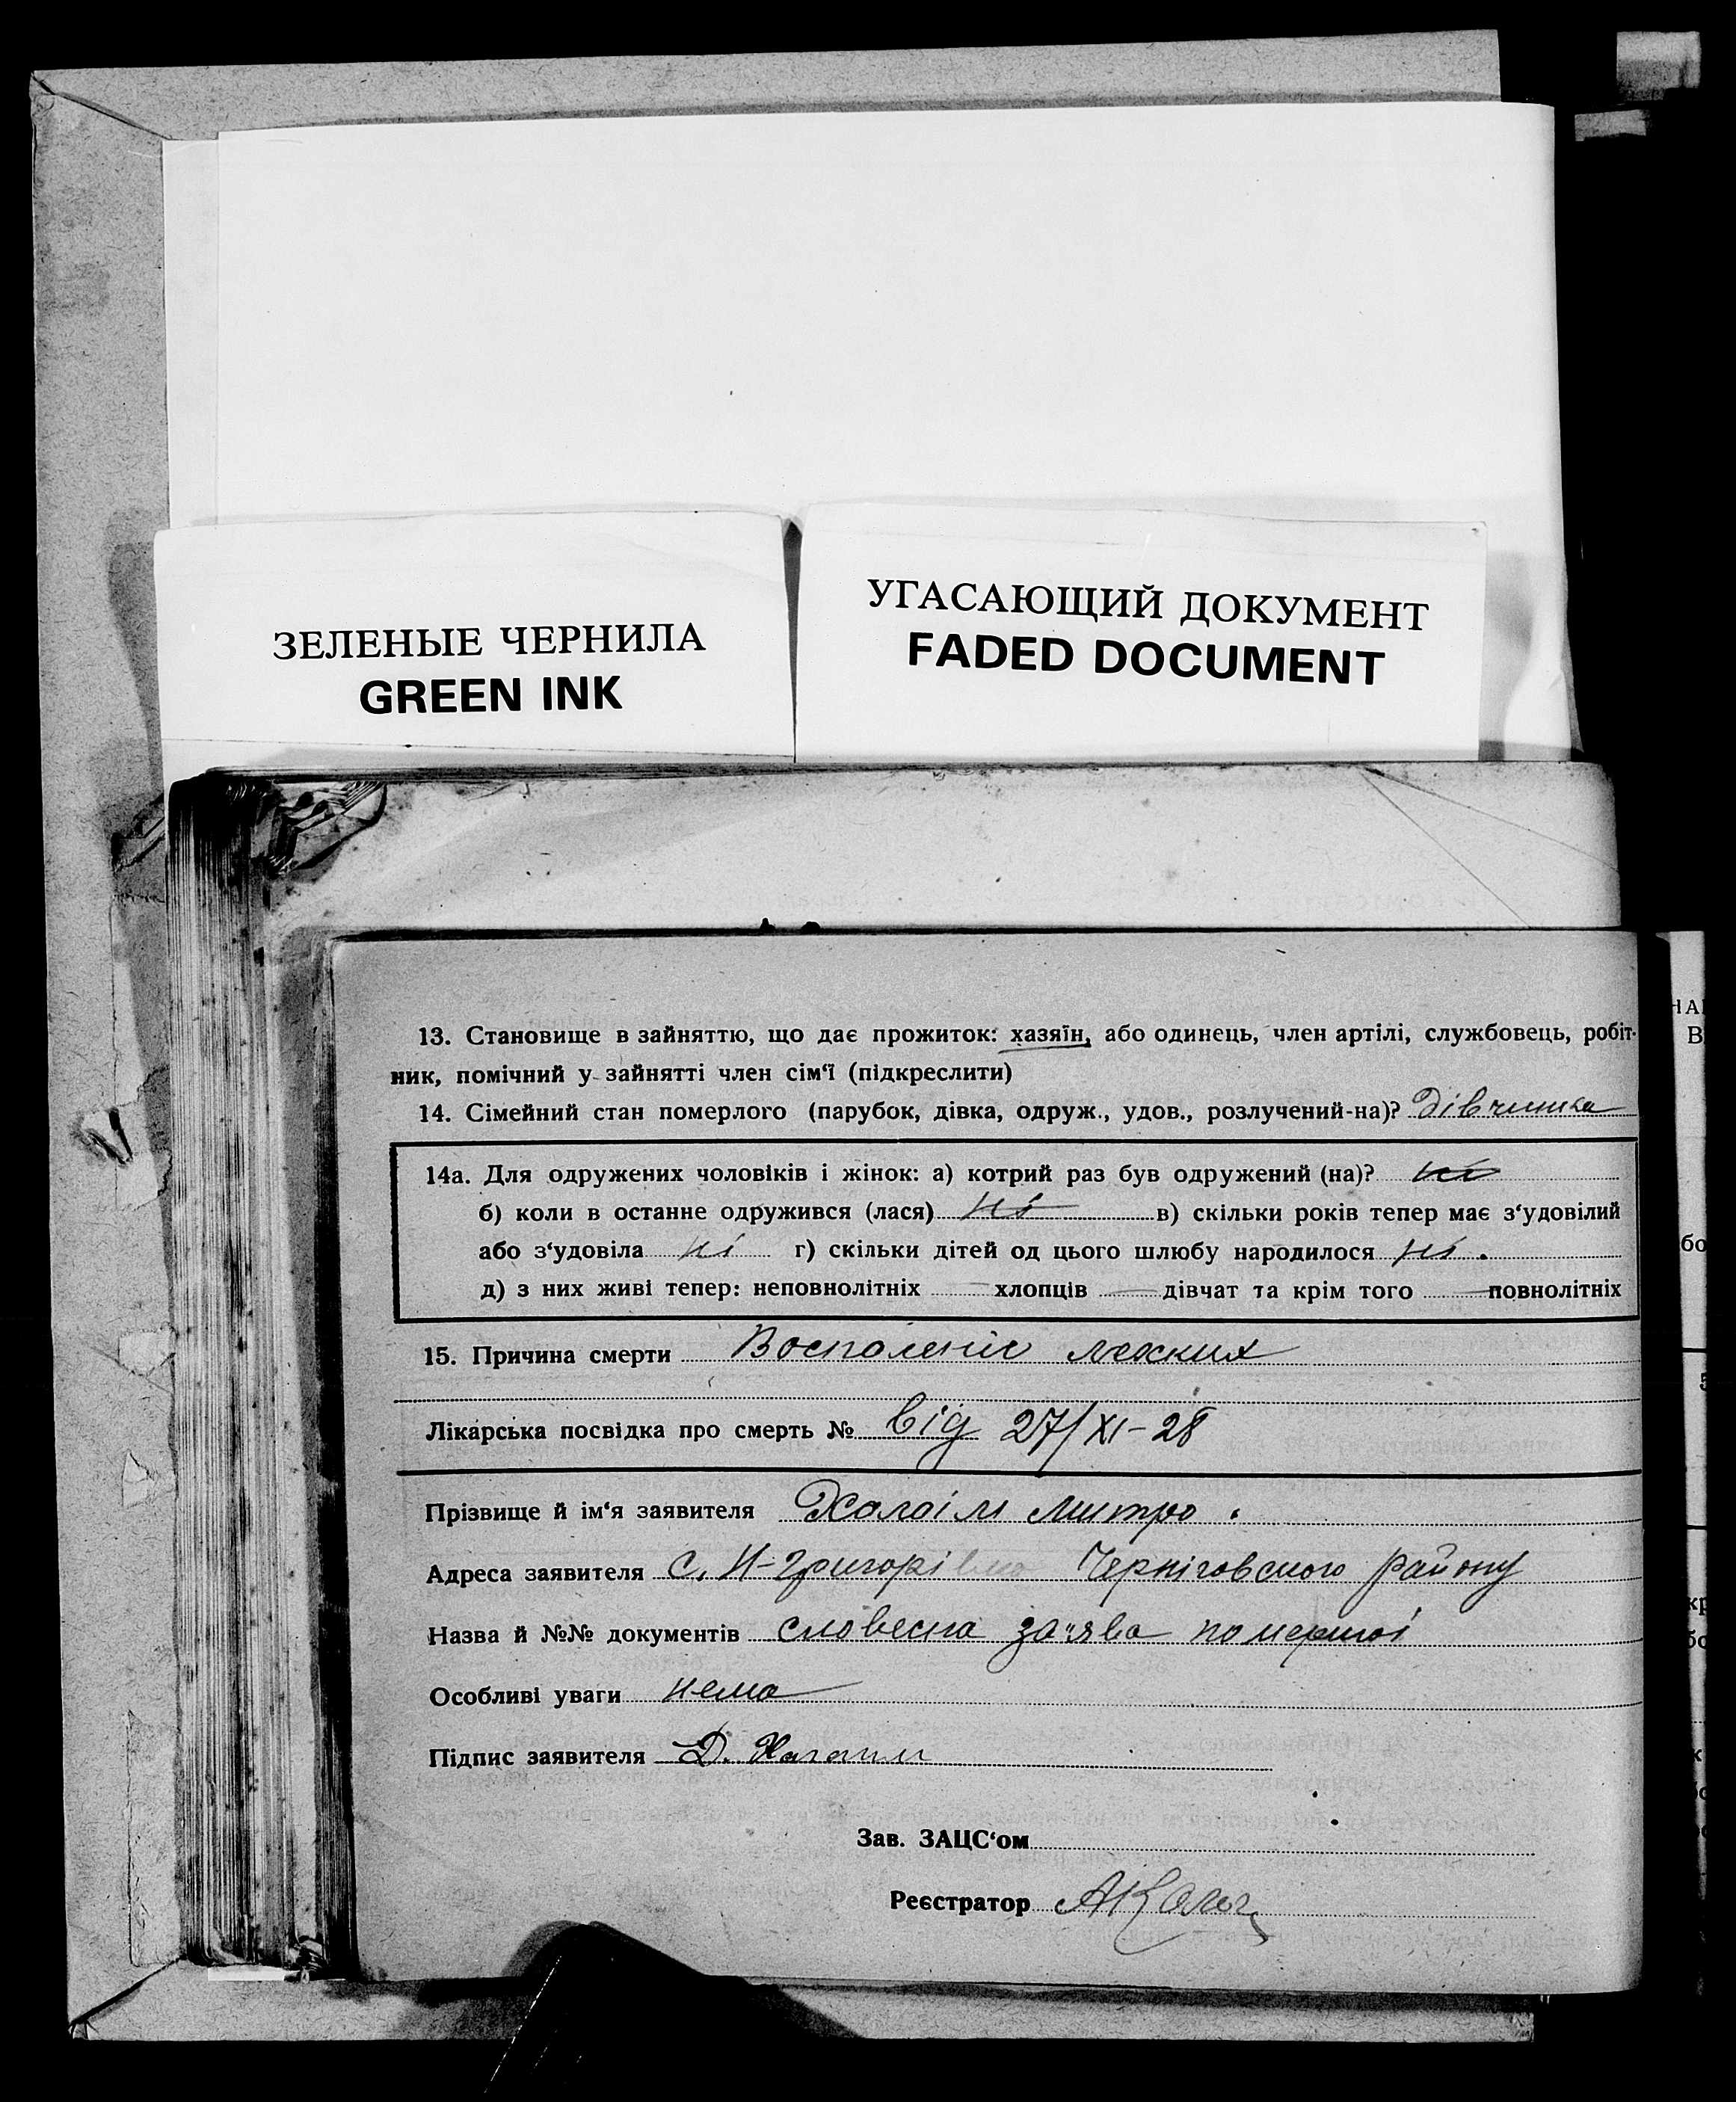 ЗЕЛЕНЫЕ ЧЕРНИЛА
GREEN INK
УГАСАЮЩИЙ ДОКУМЕНТ
FADED DOCUMENT
13. Становище в зайняттю, що дає прожиток: хазяїн, або одинець, член артілі, службовець, робіт-
ник, помічний у зайнятті член сім‘ї (підкреслити)
14. Сімейний стан померлого (парубок, дівка, одруж., удов., розлучений-на)? дівчинка
14а. Для одружених чоловіків і жінок: а) котрий раз був одружений (на)? ні
б) коли в останне одружився (лася) ні в) скільки років тепер має з‘удовілий
або з‘удовіла ні г) скільки дітей од цього шлюбу народилося ні.
д) з них живі тепер: неповнолітніх — хлопців — дівчат та крім того — повнолітніх
15. Причина смерти Воспаленіє легких
Лікарська посвідка про смерть № від 27/XI-28
Прізвище й ім‘я заявителя Митро.
Адреса заявителя с. Н-Григорівка Черніговского району
Назва й №№ документів словесна за"ява
Особливі уваги нема
Підпис заявителя Д.
Зав. ЗАЦС‘ом
Реєстратор